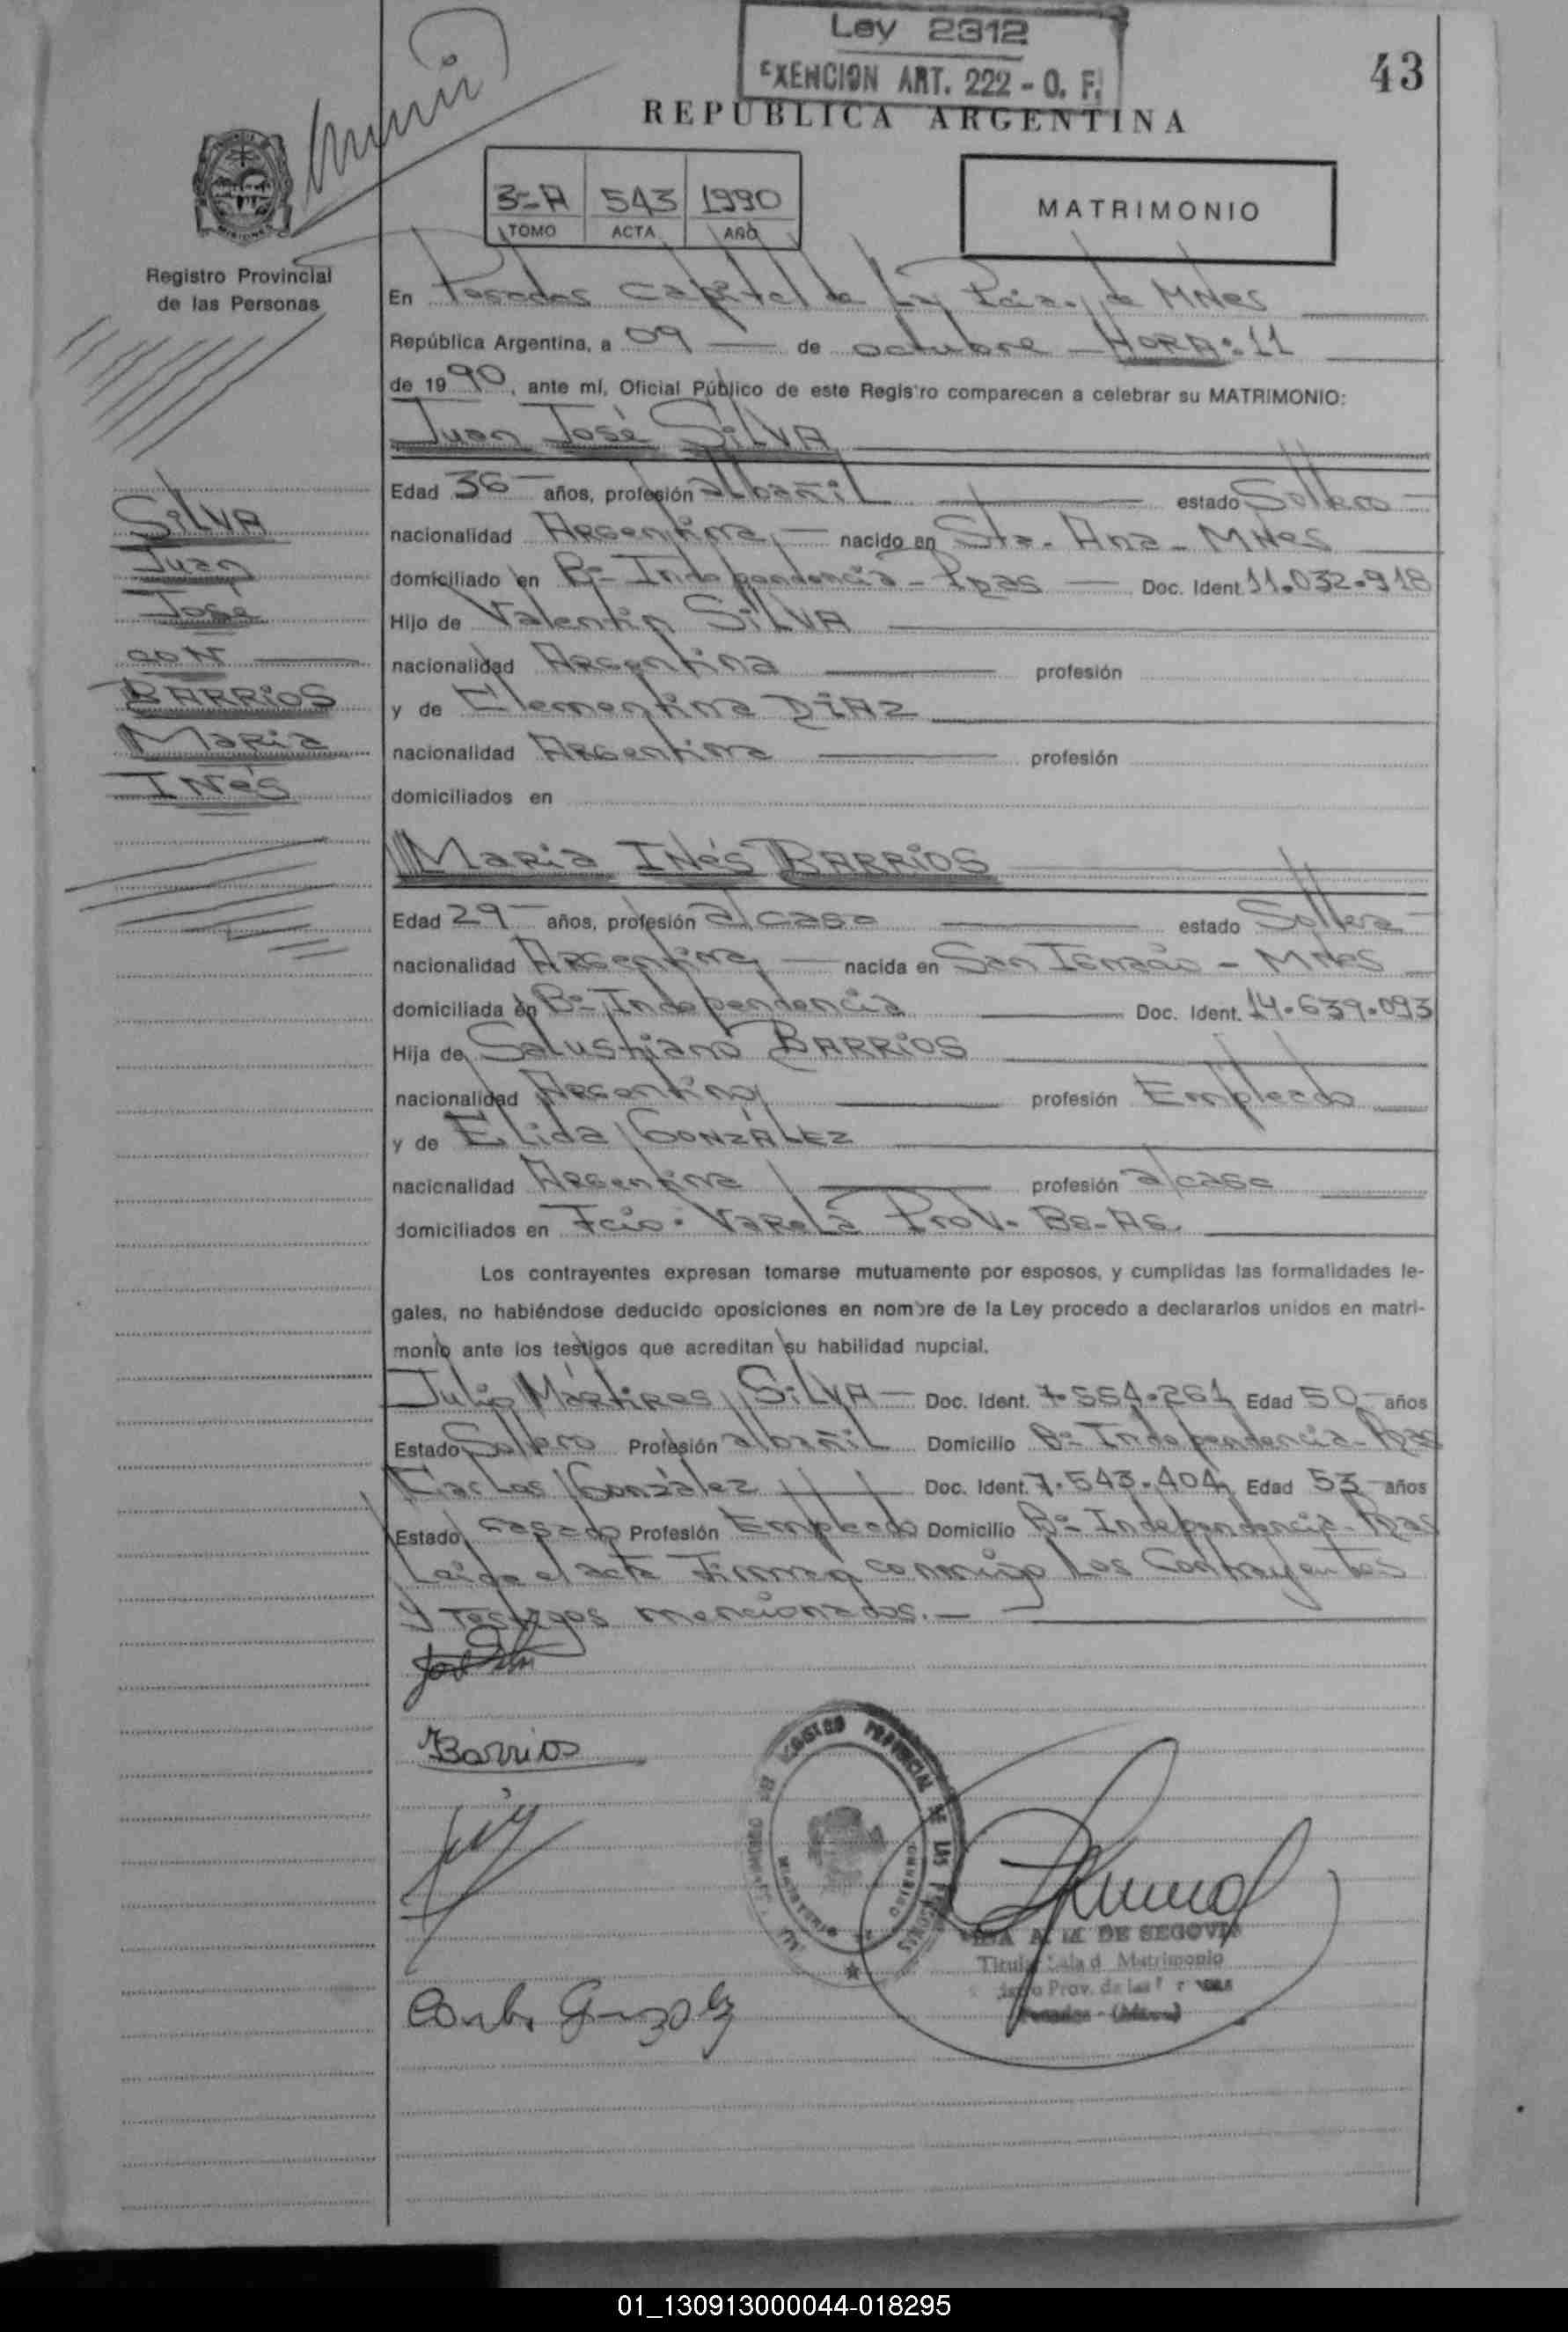 Ley 2312
EXENCION ART. 222 - O. F.
43
REPUBLICA ARGENTINA
3º-A 543 1990
TOMO ACTA AÑO
MATRIMONIO
Registro Provincial
de las Personas
En Posadas Capital de La Pcia. de MNes
República Argentina, a 09 de octubre - HORA: 11
de 1990, ante mí, Oficial Público de este Registro comparecen a celebrar su MATRIMONIO:
Juan José SILVA
Edad 36 años, profesión albañil estado Soltero
nacionalidad Argentina nacido en Sta. Ana - MNes
domiciliado en Bº Independencia - Ppas Doc. Ident. 11.032.918
Hijo de Valentin SILVA
nacionalidad Argentina profesión
y de Clementina DIAZ
nacionalidad Argentina profesión
domiciliados en
SILVA
Juan
José
CON
BARRIOS
Maria
INés
Maria INés BARRIOS
Edad 29 años, profesión a/casa estado Soltera
nacionalidad Argentina nacida en San Ignacio - MNes
domiciliada en Bº Independencia Doc. Ident. 14.639.093
Hija de Salustiano BARRIOS
nacionalidad Argentina profesión Empleado
y de Elida GONZALEZ
nacionalidad Argentina profesión a/casa
domiciliados en Fcio. Varela Prov. Bs-As.
Los contrayentes expresan tomarse mutuamente por esposos, y cumplidas las formalidades le-
gales, no habiéndose deducido oposiciones en nombre de la Ley procedo a declararlos unidos en matri-
monio ante los testigos que acreditan su habilidad nupcial.
Julio Mártires SILVA - Doc. Ident. 7.554.261 Edad 50 años
Estado Soltero Profesión albañil Domicilio Bº Independencia - Ppas
Carlos González Doc. Ident. 7.543.404 Edad 53 años
Estado casado Profesión Empleado Domicilio Bº Independencia - Ppas
Leida el acta Firman conmigo Los Contrayentes
y Testigos mencionados.-
Barrios
REGISTRO PROVINCIAL DE LAS PERSONAS
MINISTERIO DE GOBIERNO
Carlos Gonzalez
A. M. DE SEGOVIA
Titular Sala d. Matrimonio
Prov. de las
Posadas - (Mnes.)
01_130913000044-018295